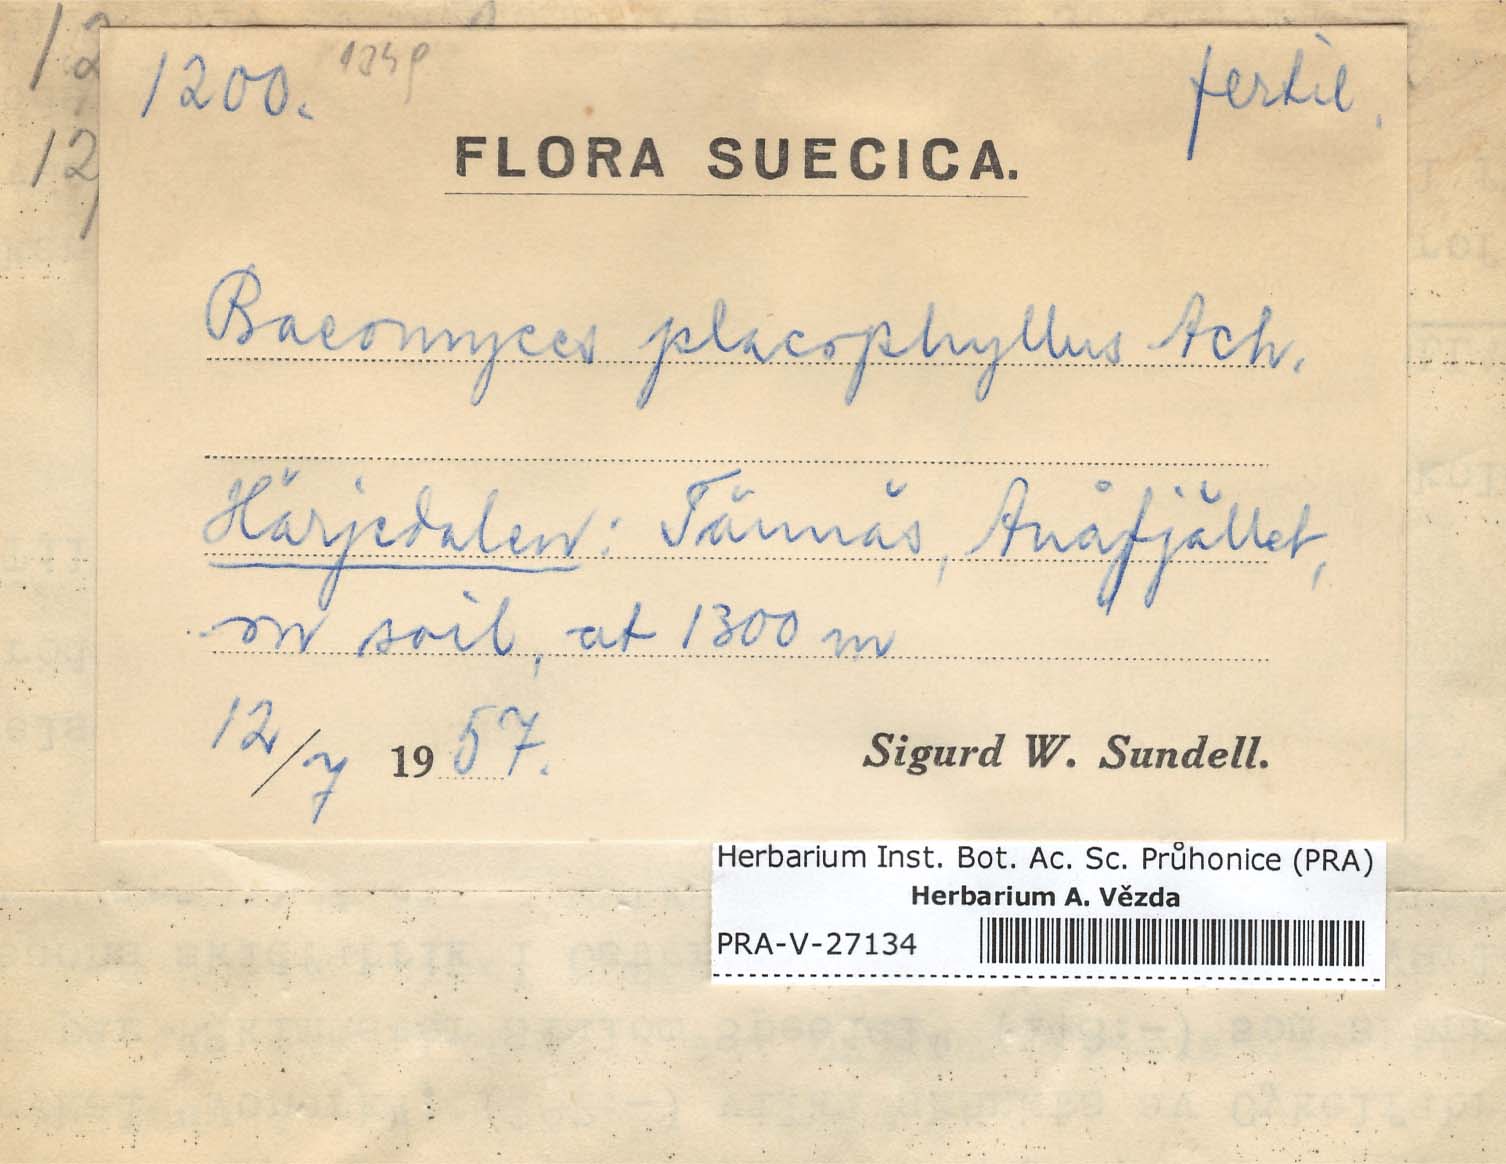 1200. fertil.
FLORA SUECICA.
Baeomyces placophyllus Ach.
Härjedalen: Tännäs, Anåfjället,
on soil, at 1300 m
12/7 1957. Sigurd W. Sundell.
Herbarium Inst. Bot. Ac. Sc. Průhonice (PRA)
Herbarium A. Vězda
PRA-V-27134